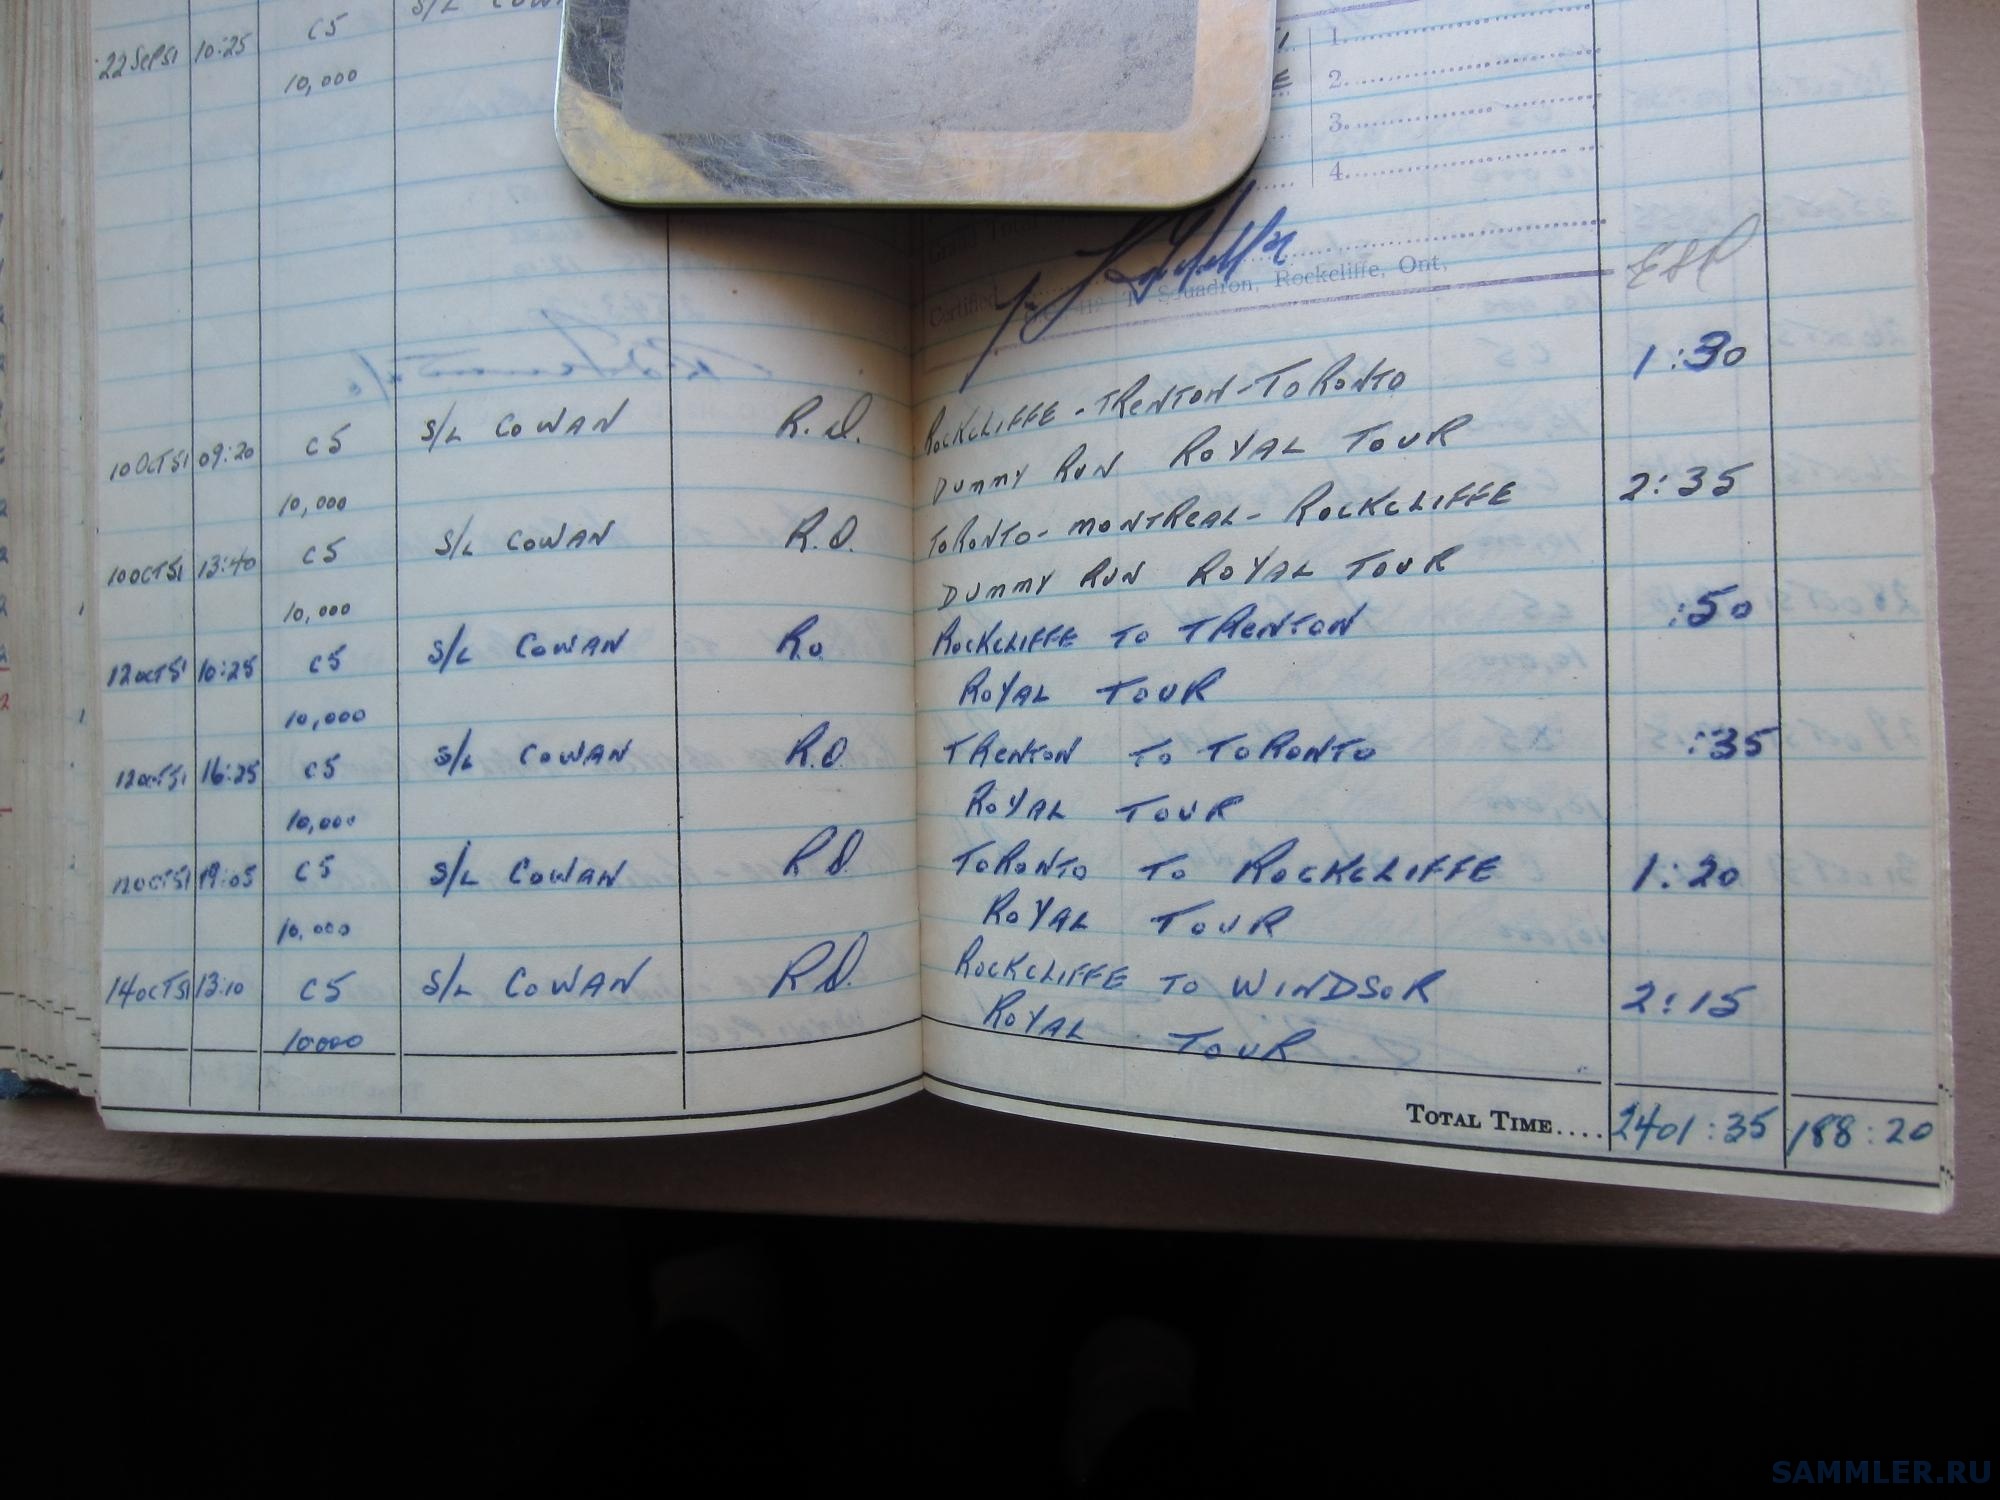 C5
22 Sep 51 10:25
10,000
1.
2.
3.
4.
Grand Total
Certified
T Squadron, Rockcliffe, Ont.
10 OCT 51 09:20 C5 S/L COWAN R.O. ROCKCLIFFE - TRENTON - TORONTO 1:30
10,000 DUMMY RUN ROYAL TOUR
10 OCT 51 13:40 C5 S/L COWAN R.O. TORONTO - MONTREAL - ROCKCLIFFE 2:35
10,000 DUMMY RUN ROYAL TOUR
12 OCT 51 10:25 C5 S/L COWAN R.O ROCKCLIFFE TO TRENTON :50
10,000 ROYAL TOUR
12 OCT 51 16:25 C5 S/L COWAN R.O. TRENTON TO TORONTO :35
10,000 ROYAL TOUR
12 OCT 51 19:05 C5 S/L COWAN R.O. TORONTO TO ROCKCLIFFE 1:20
10,000 ROYAL TOUR
14 OCT 51 13:10 C5 S/L COWAN R.O. ROCKCLIFFE TO WINDSOR 2:15
10000 ROYAL TOUR
TOTAL TIME.... 2401:35 188:20
SAMMLER.RU